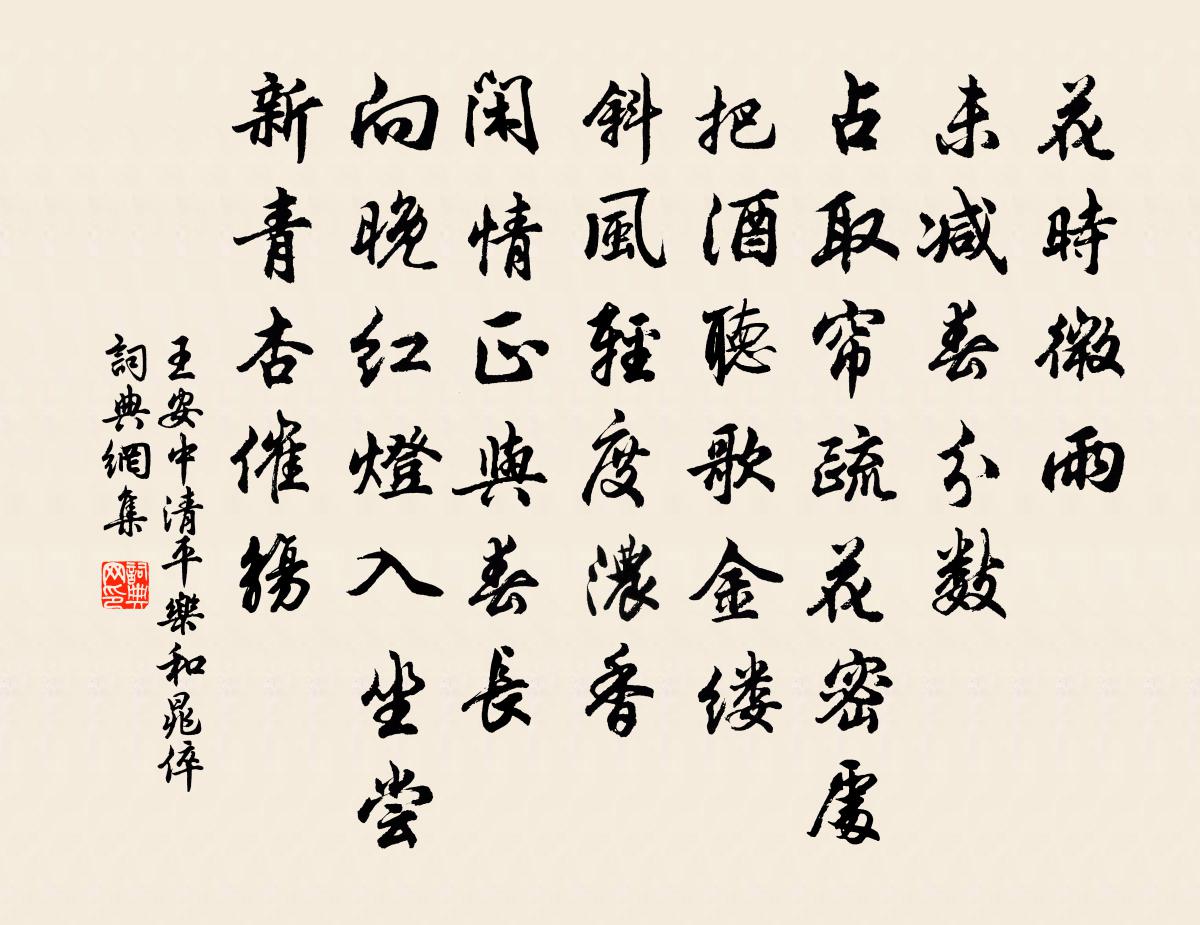 花時微雨
未減春分數
占取帘疏花密處
把酒聽歌金缕
斜風輕度濃香
闲情正與春長
向晚红燈入坐
尝新青杏催觞
王安中清平樂和晁倅
詞典網集
詞典网印